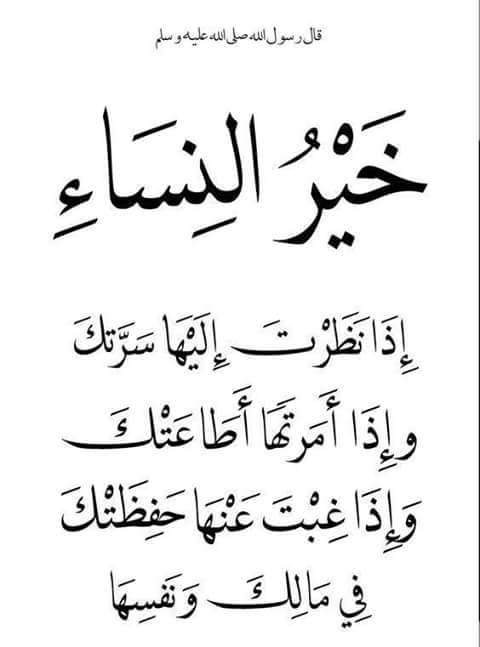 قال رسول الله صلى الله عليه وسلم
خَيْرُ النِسَاءِ
إِذَا نَظَرْتَ إِلَيْهَا سَرَّتكَ
وإِذَا أَمَرتَهَا أَطَاعَتْكَ
وَإِذَا غِبْتَ عَنْهَا حَفِظَتْكَ
فِي مَالِكَ وَنَفسِهَا